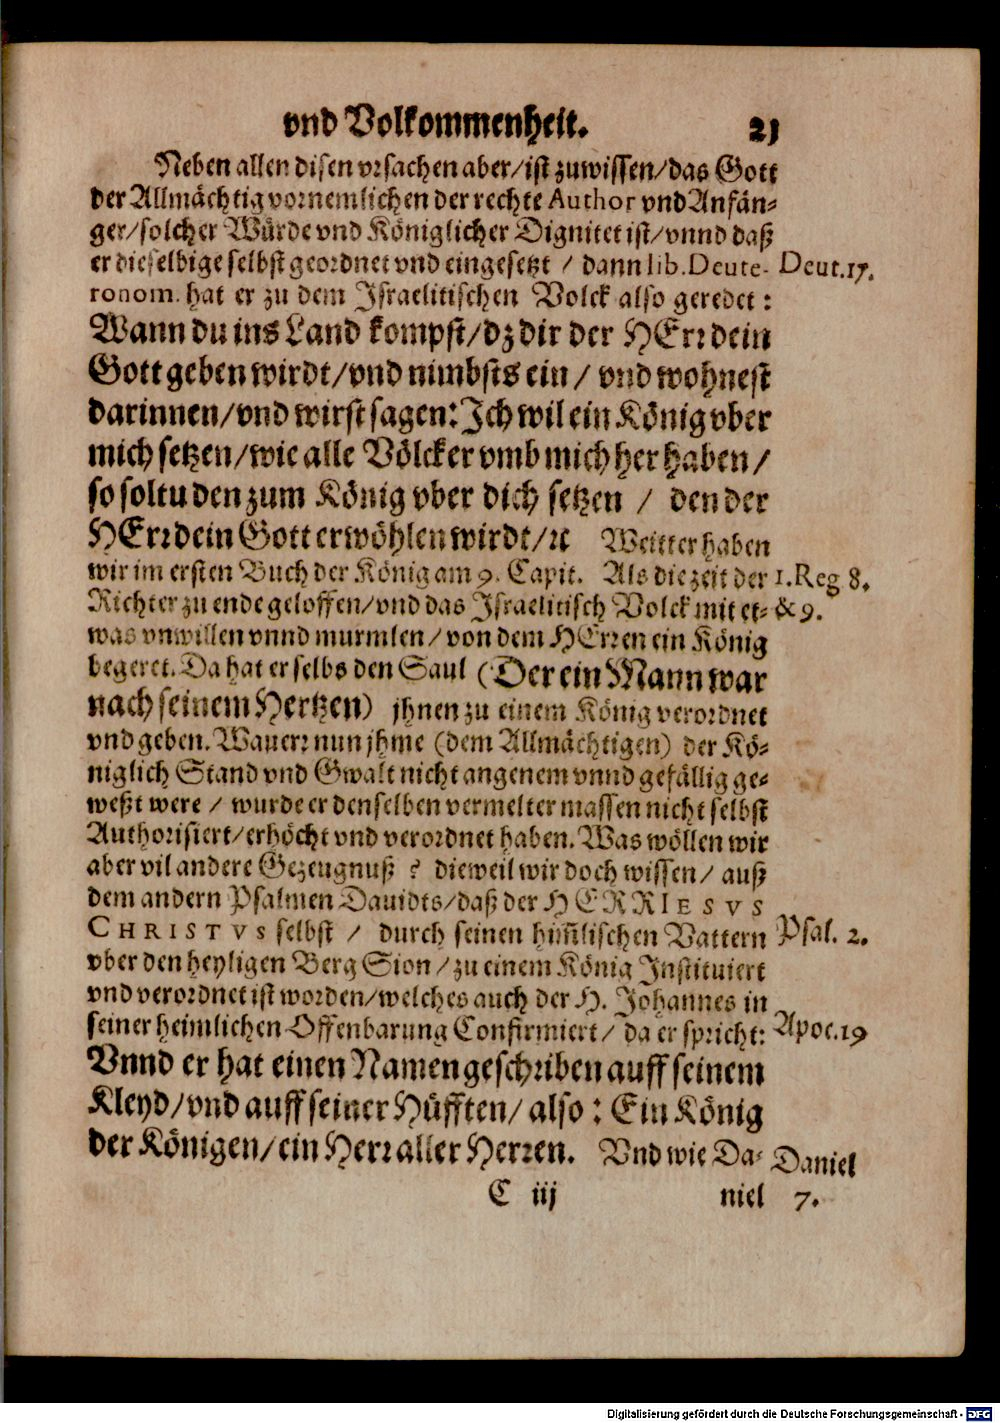 vnd Volkommenheit. 21
Neben allen disen vrsachen aber/ist zuwissen/das Gott
der Allmächtig vornemlichen der rechte Author vnd Anfän-
ger/solcher Würde vnd Königlicher Dignitet ist/vnnd daß
er dieselbige selbst geordnet vnd eingesetzt / dann lib. Deute- Deut.17.
ronom. hat er zu dem Israelitischen Volck also geredet:
Wann du ins Land kompst/dz dir der HErr dein
Gott geben wirdt/vnd nimbsts ein / vnd wohnest
darinnen/vnd wirst sagen: Ich wil ein König vber
mich setzen/wie alle Völcker vmb mich her haben/
so soltu den zum König vber dich setzen / den der
HErr dein Gott erwöhlen wirdt/ꝛc Weitter haben
wir im ersten Buch der König am 9. Capit. Als die zeit der 1.Reg 8.
Richter zu ende geloffen/vnd das Israelitisch Volck mit et- & 9.
was vnwillen vnnd murmlen/von dem HErren ein König
begeret. Da hat er selbs den Saul (Der ein Mann war
nach seinem Hertzen) jhnen zu einem König verordnet
vnd geben. Wauerr nun jhme (dem Allmächtigen) der Kö-
niglich Stand vnd Gwalt nicht angenem vnnd gefällig ge-
weßt were / wurde er denselben vermelter massen nicht selbst
Authorisiert/erhöcht vnd verordnet haben. Was wöllen wir
aber vil andere Gezeugnuß ? dieweil wir doch wissen/ auß
dem andern Psalmen Dauidts/daß der HERR IESVS
CHRISTVS selbst / durch seinen him̃lischen Vattern Psal. 2.
vber den heyligen Berg Sion/zu einem König Instituiert
vnd verordnet ist worden/welches auch der H. Johannes in
seiner heimlichen Offenbarung Confirmiert/ da er spricht: Apoc.19
Vnnd er hat einen Namen geschriben auff seinem
Kleyd/vnd auff seiner Hüfften/ also: Ein König
der Königen/ein Herr aller Herren. Vnd wie Da- Daniel
C iij niel 7.
Digitalisierung gefördert durch die Deutsche Forschungsgemeinschaft - DFG